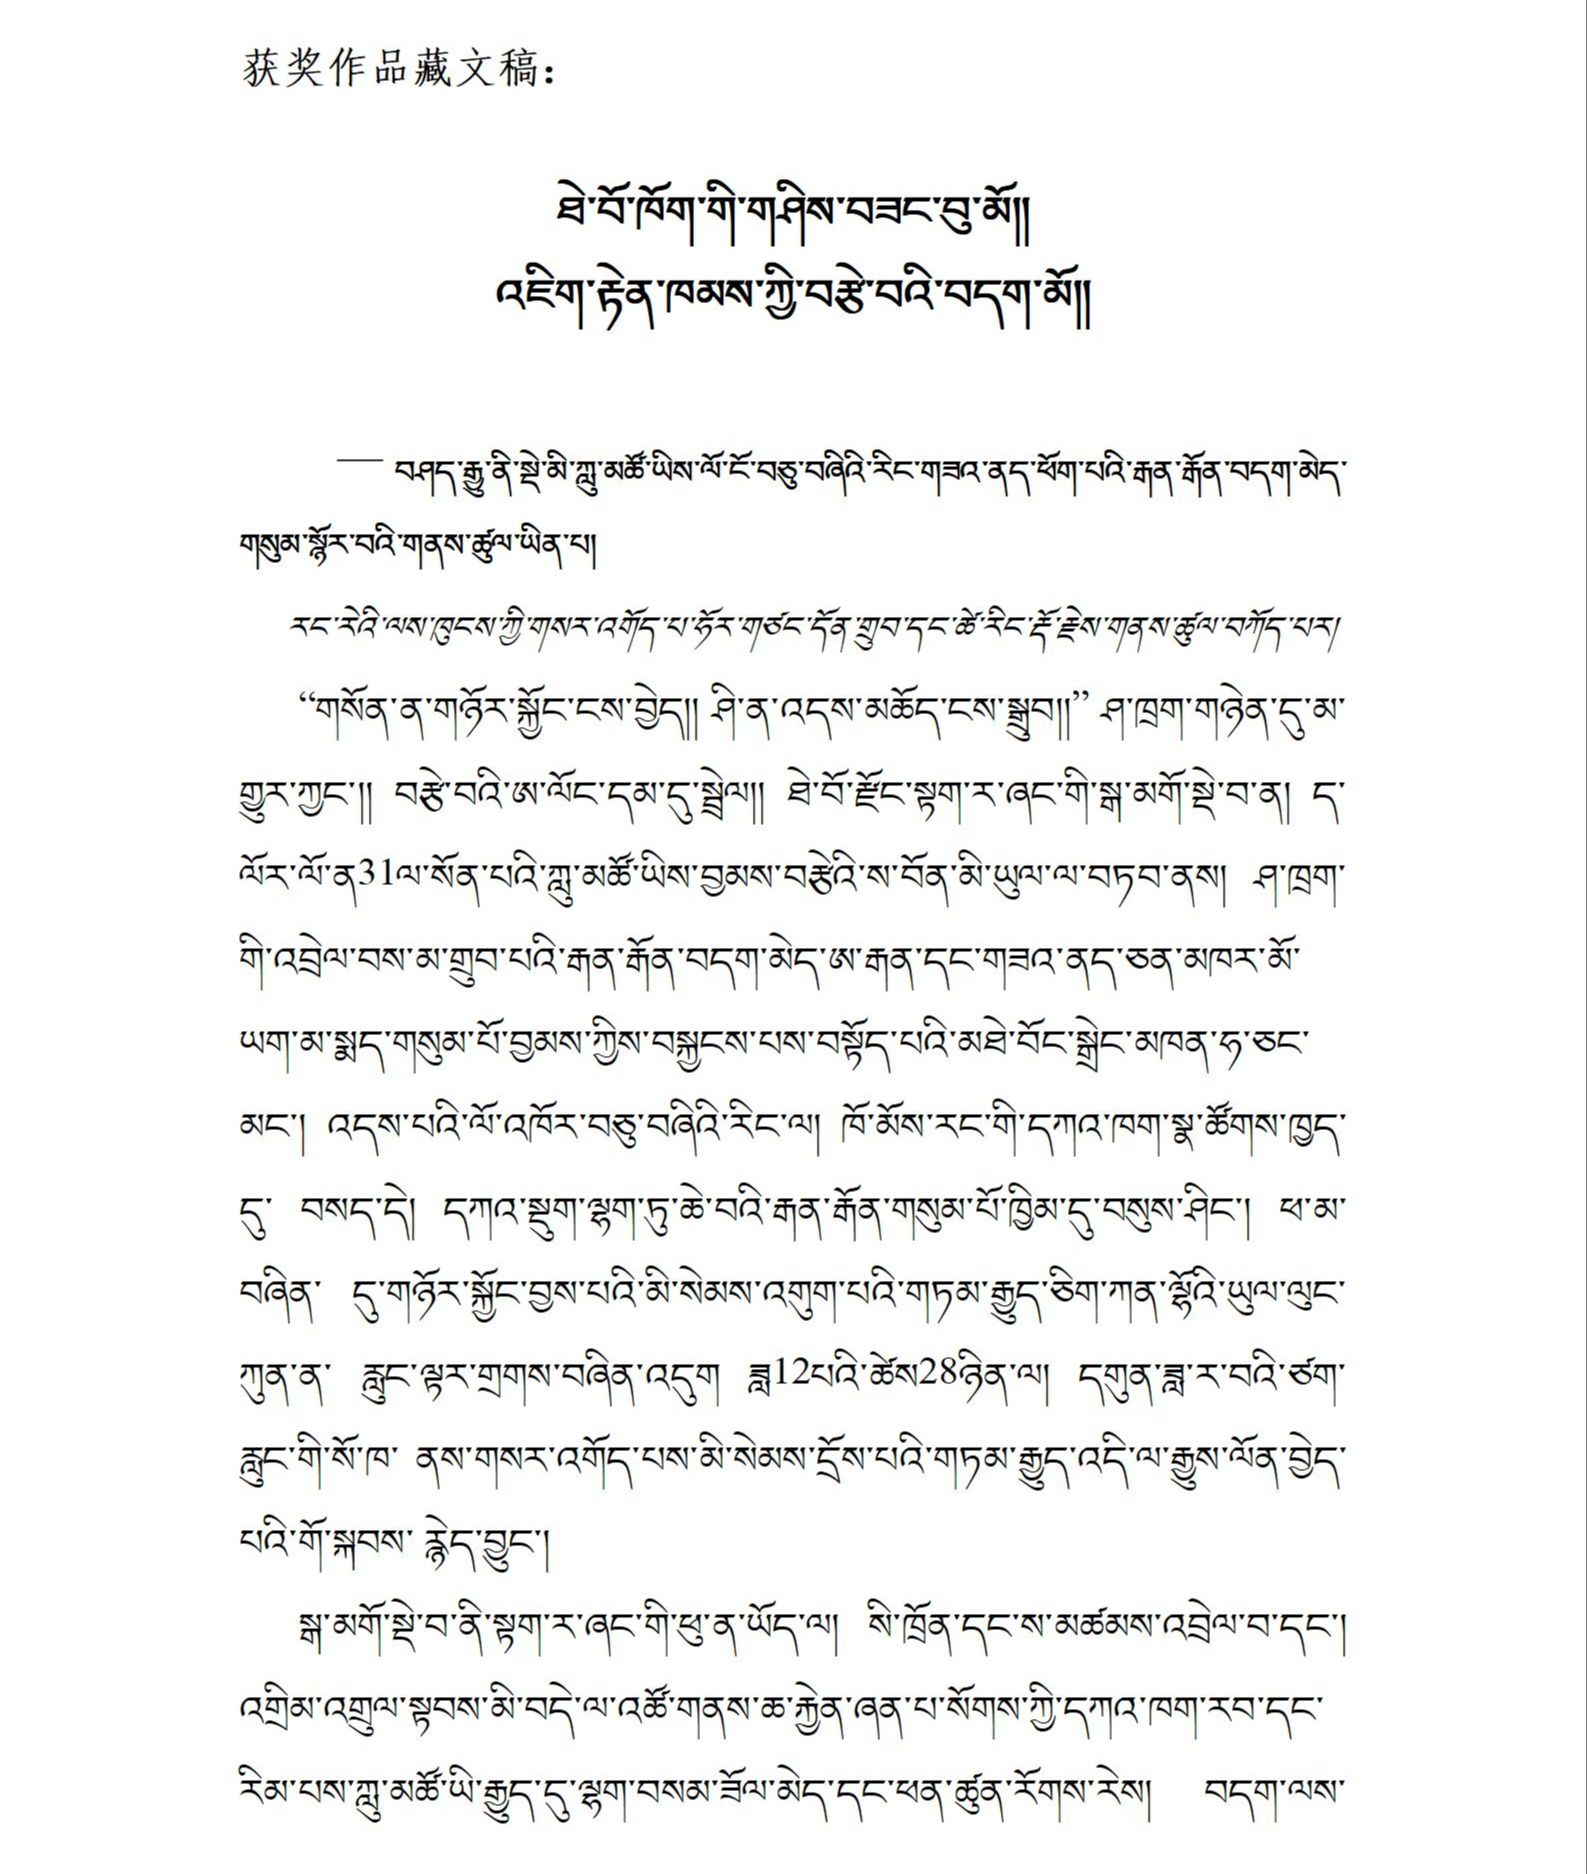 获奖作品藏文稿：
ཐེ་བོ་ཁོག་གི་གཤིས་བཟང་བུ་མོ།།
འཇིག་རྟེན་ཁམས་ཀྱི་བརྩེ་བའི་བདག་མོ།།
— བཤད་རྒྱུ་ནི་སྡེ་མི་ཀླུ་མཚོ་ཡིས་ལོ་ངོ་བཅུ་བཞིའི་རིང་གཟའ་ནད་ཕོག་པའི་རྒན་རྒོན་བདག་མེད་
གསུམ་སྐྱོར་བའི་གནས་ཚུལ་ཡིན་པ།
རང་རེའི་ལས་ཁུངས་ཀྱི་གསར་འགོད་པ་ཧོར་གཙང་དོན་གྲུབ་དང་ཚེ་རིང་རྡོ་རྗེས་གནས་ཚུལ་བཀོད་པར།
“གསོན་ན་གཉོར་སྐྱོང་ངས་བྱེད།། ཤི་ན་འདས་མཆོད་ངས་སྒྲུབ།།” ཤ་ཁྲག་གཉེན་དུ་མ་
གྱུར་ཀྱང་།། བརྩེ་བའི་ཨ་ལོང་དམ་དུ་སྦྲེལ།། ཐེ་བོ་རྫོང་སྟག་ར་ཞང་གི་སྒ་མགོ་སྡེ་བ་ན། ད་
ལོར་ལོ་ན31ལ་སོན་པའི་ཀླུ་མཚོ་ཡིས་བྱམས་བརྩེའི་ས་བོན་མི་ཡུལ་ལ་བཏབ་ནས། ཤ་ཁྲག་
གི་འབྲེལ་བས་མ་གྲུབ་པའི་རྒན་རྒོན་བདག་མེད་ཨ་རྒན་དང་གཟའ་ནད་ཅན་མཁར་མོ་
ཡག་མ་སྨད་གསུམ་པོ་བྱམས་ཀྱིས་བསྐྱངས་པས་བསྟོད་པའི་མཐེ་བོང་སྒྲེང་མཁན་ཧ་ཅང་
མང་། འདས་པའི་ལོ་འཁོར་བཅུ་བཞིའི་རིང་ལ། ཁོ་མོས་རང་གི་དཀའ་ཁག་སྣ་ཚོགས་ཁྱད་
དུ་ བསད་དེ། དཀའ་སྡུག་ལྷག་ཏུ་ཆེ་བའི་རྒན་རྒོན་གསུམ་པོ་ཁྱིམ་དུ་བསུས་ཤིང་། ཕ་མ་
བཞིན་ དུ་གཉོར་སྐྱོང་བྱས་པའི་མི་སེམས་འགུག་པའི་གཏམ་རྒྱུད་ཅིག་ཀན་ལྷོའི་ཡུལ་ལུང་
ཀུན་ན་ རླུང་ལྟར་གྲགས་བཞིན་འདུག ཟླ12པའི་ཚེས28ཉིན་ལ། དགུན་ཟླ་ར་བའི་ཙག་
རླུང་གི་སོ་ཁ་ ནས་གསར་འགོད་པས་མི་སེམས་དྲོས་པའི་གཏམ་རྒྱུད་འདི་ལ་རྒྱུས་ལོན་བྱེད་
པའི་གོ་སྐབས་ རྙེད་བྱུང་།
སྒ་མགོ་སྡེ་བ་ནི་སྟག་ར་ཞང་གི་ཕུ་ན་ཡོད་ལ། སི་ཁྲོན་དང་ས་མཚམས་འབྲེལ་བ་དང་།
འགྲིམ་འགྲུལ་སྟབས་མི་བདེ་ལ་འཚོ་གནས་ཆ་རྐྱེན་ཞན་པ་སོགས་ཀྱི་དཀའ་ཁག་རབ་དང་
རིམ་པས་ཀླུ་མཚོ་ཡི་རྒྱུད་དུ་ལྷག་བསམ་ཟོལ་མེད་དང་ཕན་ཚུན་རོགས་རེས། བདག་ལས་